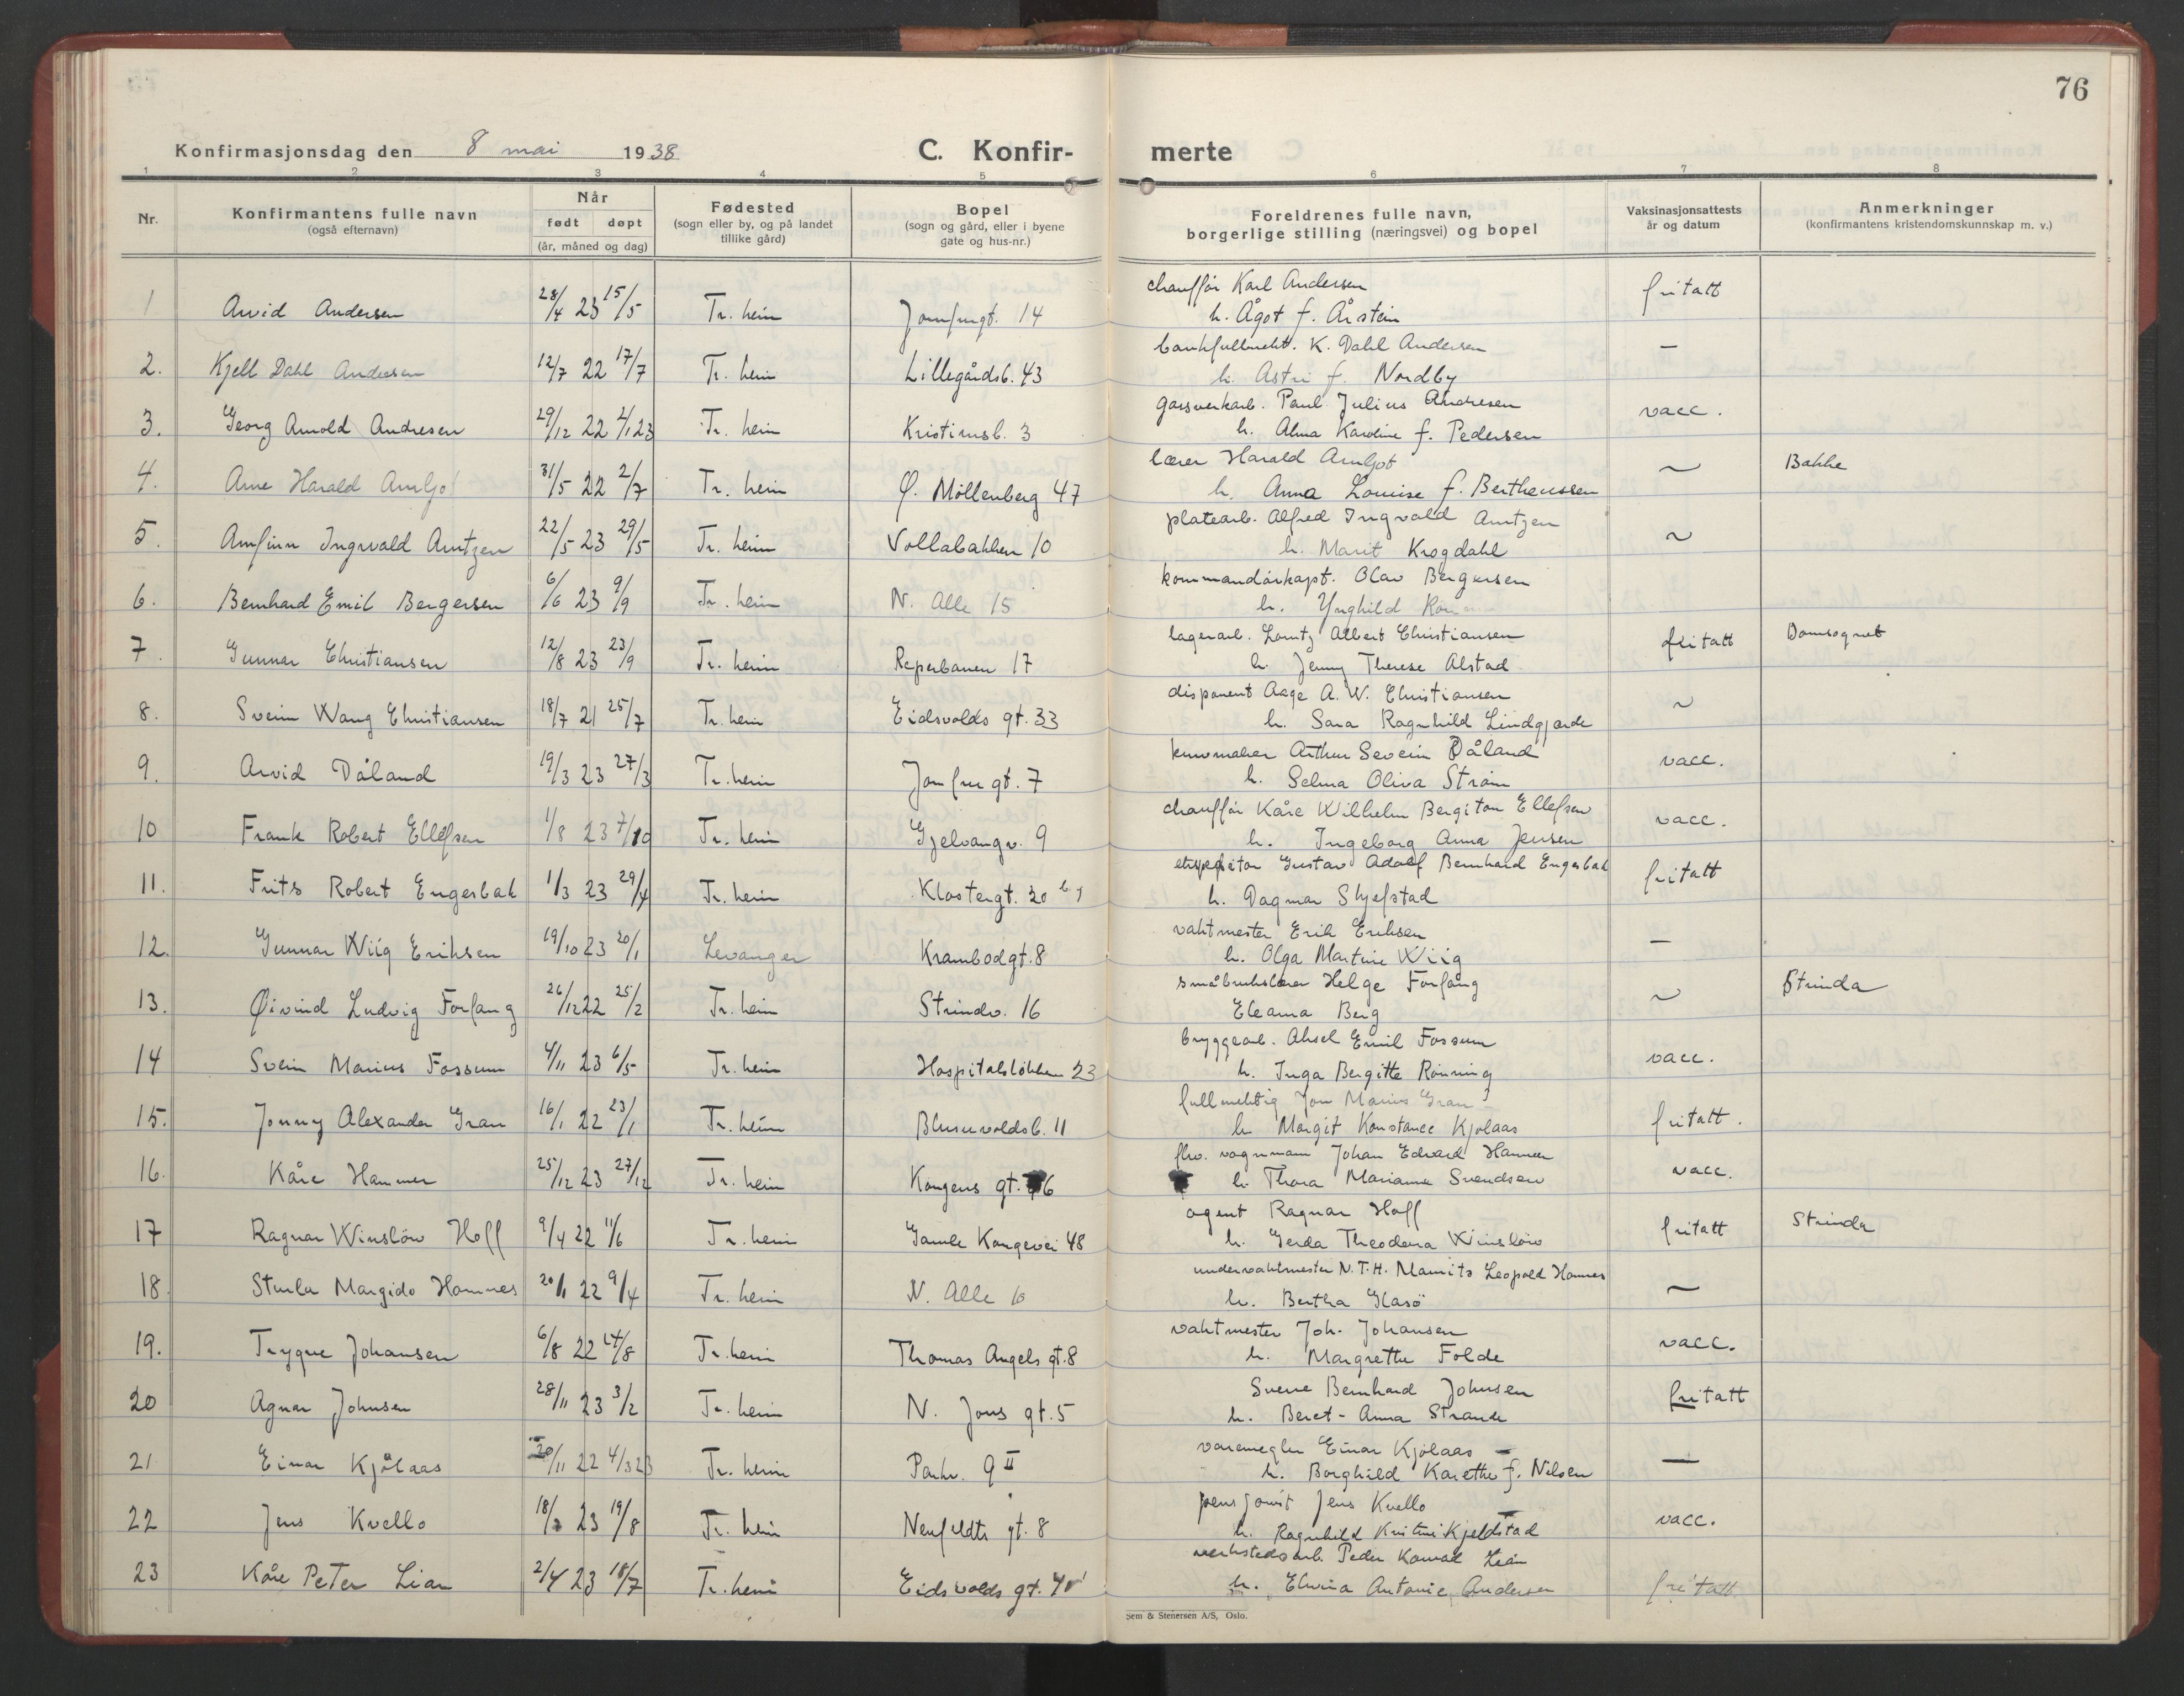 76
Konfirmasjonsdag den 8 mai 1938 C. Konfir- merte
1 2 3 4 5 6 7 8
Nr. Konfirmantens fulle navn (også efternavn) Når født døpt (år, måned og dag) Fødested (sogn eller by, og på landet tillike gård) Bopel (sogn og gård, eller i byene gate og hus-nr.) Foreldrenes fulle navn, borgerlige stilling (næringsvei) og bopel Vaksinasjonsattests år og datum Anmerkninger (konfirmantens kristendomskunnskap m. v.)
chauffør Karl Andersen
1 Arvid Andersen 28/4 23 15/5 Tr. heim Jomfrugt. 14 h. Ågot f. Årstein fritatt
bankfullmekt. K. Dahl Andersen
2. Kjell Dahl Andersen 12/7 22 17/7 Tr. heim Lillegårdsb. 43 h. Astri f. Nordby —
gassverkarb. Paul Julius Andresen
3. Georg Arnold Andresen 29/12 22 2/1 23 Tr. heim Kristiansb. 3 h. Alma Karoline f. Pedersen vacc.
lærer Harald Arnljot
4. Arne Harald Arnljot 31/5 22 2/7 Tr. heim Ø. Möllenberg 47 h. Anna Louise f. Bertheussen ~ Bakke
platearb. Alfred Ingvald Arntzen
5. Arnfinn Ingvald Arntzen 22/5 23 29/5 Tr. heim Vollabakken 10 h. Marit Krogdahl ~
kommandørkapt. Olav Bergersen
6. Bernhard Emil Bergersen 6/6 23 9/9 Tr. heim N. Alle 15 h. Ynghild
lagerarb. Lorntz Albert Christiansen
7. Gunnar Christiansen 12/8 23 23/9 Tr. heim Reperbanen 17 h. Jenny Therese Alstad fritatt Domsognet
disponent Aage A. W. Christiansen
8. Svein Wang Christiansen 18/7 21 25/7 Tr. heim Eidsvolds gt. 33 h. Sara Ragnhild Lindgjærde ~
Arthur Severin Dåland
9. Arvid Dåland 19/3 23 27/3 Tr. heim Jomfru gt. 7 h. Selma Oliva Strøm vacc.
chauffør Kåre Wilhelm Bergiton Ellefsen
10 Frank Robert Ellefsen 1/8 23 7/10 Tr. heim Gjelvangv. 9 h. Ingeborg Anna Jensen vacc.
ekspeditør Gustav Adolf Bernhard Engesbak
11. Frits Robert Engesbak 1/3 23 29/4 Tr. heim Klostergt. 20 b h. Dagmar Skjefstad fritatt
vaktmester Erik Eriksen
12. Gunnar Wiig Eriksen 19/10 23 20/1 Levanger Krambodgt. 8 h. Olga Martine Wiig —
småbrukslærer Helge Forfang
13. Øivind Ludvig Forfang 26/12 22 25/2 Tr. heim Strindv. 16 Eleanna Berg ~ Strinda
bryggearb. Aksel Emil Fossum
14 Svein Marius Fossum 4/11 23 6/5 Tr. heim Hospitalsløkken 23 h. Inga Bergitte Rönning vacc.
fullmektig Jon Marius Gran
15. Jonny Alexander Gran 16/1 22 23/1 Tr. heim Blusuvoldsb. 11 h. Margit Konstance Kjölaas fritatt.
fhv. vognmann Johan Edvard Hammer
16. Kåre Hammer 25/12 23 27/12 Tr. heim Kongens gt. 6 h. Thora Marianne Svendsen vacc.
agent Ragnar Hoff
17 Ragnar Winslöw Hoff 9/4 22 11/6 Tr. heim Gamle Kongevei 48 h. Gerda Theodora Winslöw fritatt Strinda
undervaktmester N.T.H. Mauritz Leopold Hamnes
18 Sturla Margido Hamnes 20/1 22 9/4 Tr. heim N. Alle 10 h. Bertha Glasö ~
vaktmester Joh. Johansen
19. Trygve Johansen 6/8 22 27/8 Tr. heim Thomas Angels gt. 8 h. Margrethe Folde vacc.
Sverre Bernhard Johnsen
20 Agnar Johnsen 28/11 23 3/2 Tr. heim N. Jons gt. 5 h. Beret-Anna Strande fritatt
varemegler Einar Kjölaas
21 Einar Kjölaas 20/11 22 4/3 23 Tr. heim Parkv. 9 II h. Borghild Karethe f. Nilsen —
Jens Kvello
22 Jens Kvello 18/3 23 19/8 Tr. heim Neufeldts gt. 8 h. Ragnhild Kristine Kjeldstad vacc.
verkstedsarb. Peder Konrad Lian
23 Kåre Peter Lian 2/4 23 18/7 Tr. heim Eidsvolds gt. h. Elvina Antonie Andersen fritatt
Sem & Stenersen A/S, Oslo.